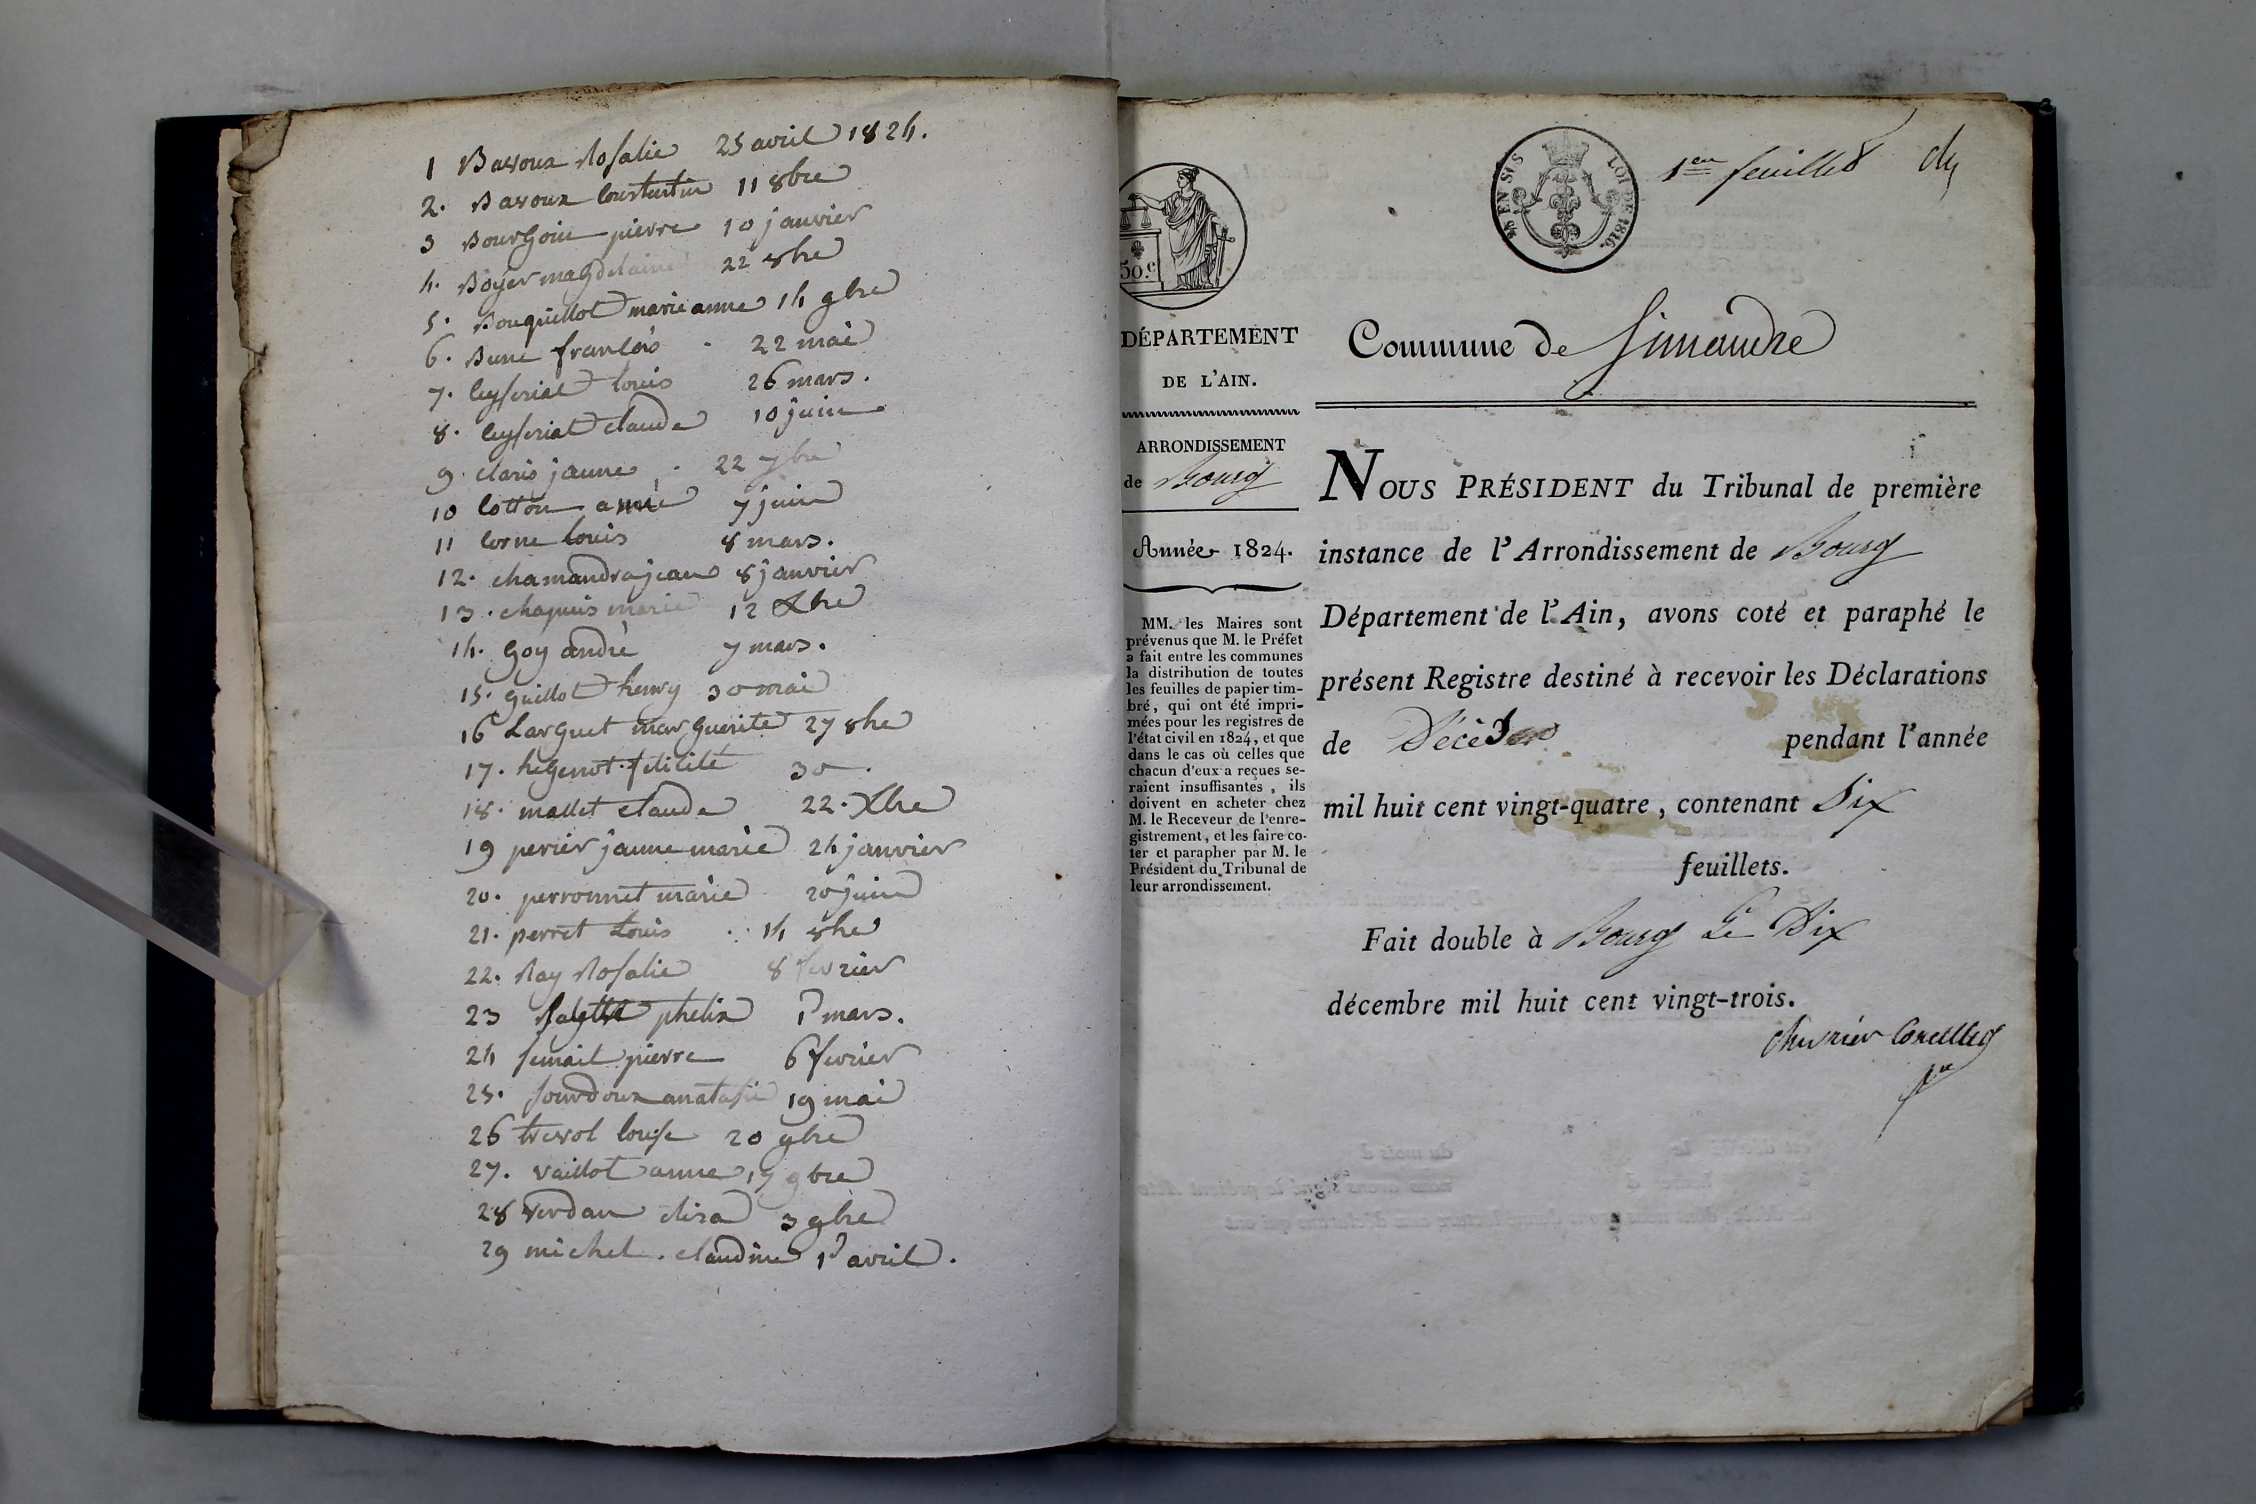 1 Bavoux Rosalie 25 avril 1824.
2. Bavoux 11 8bre
3 Bourgoin pierre 10 janvier
4. Boyer magdelaine 22 8bre
5. Bouquillot marie anne 14 9bre
6. Bune françois 22 mai
7. Ceyseriat louis 26 mars.
8. Ceyseriat claude 10 juin
9. claris jaune 22 7bre
10 Cotton aimé 7 juin
11 Corne louis 8 mars.
12. chamandra jean 8 janvier
13. chapuis marie 12 Xbre
14. Goy andré 7 mars.
15. Guillot henry 30 mai
16 Larguet marguerite 27 8bre
17. félicité 30.
18. mallet claude 22. Xbre
19 perier jaune marie 24 janvier
20. perronnet marie 20 juin
21. perret Louis 14 8bre
22. Ray Rosalie 8 fevrier
23 phelix 1er mars.
24 pierre 6 fevrier
25. Sourdoux anatasie 19 mai
26 trevol louise 20 9bre
27. vaillot anne 17 9bre
28 verdan eliza 3 9bre
29 michel. claudine 1er avril.
50.c
DÉPARTEMENT
DE L'AIN.
ARRONDISSEMENT
de Bourg
Année 1824.
MM. les Maires sont
prévenus que M. le Préfet
a fait entre les communes
la distribution de toutes
les feuilles de papier tim-
bré, qui ont été impri-
mées pour les registres de
l'état civil en 1824, et que
dans le cas où celles que
chacun d'eux a reçues se-
raient insuffisantes, ils
doivent en acheter chez
M. le Receveur de l'enre-
gistrement, et les faire co-
ter et parapher par M. le
Président du Tribunal de
leur arrondissement.
EN SUS LOI DE 1816.
1er feuillet
Commune de Simandre
NOUS PRÉSIDENT du Tribunal de première
instance de l'Arrondissement de Bourg
Département de l'Ain, avons coté et paraphé le
présent Registre destiné à recevoir les Déclarations
de Décès pendant l'année
mil huit cent vingt-quatre, contenant Six
feuillets.
Fait double à Bourg Le Dix
décembre mil huit cent vingt-trois.
Chevrier Corcelles